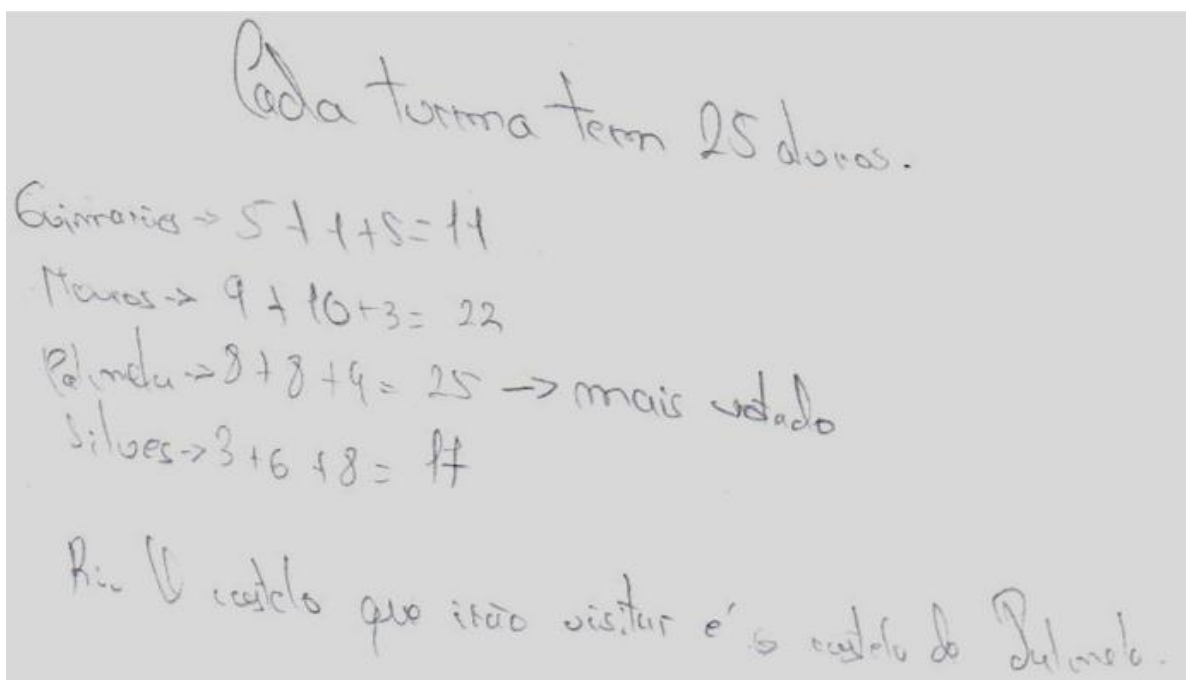 Cada turma tem 25 alunos.
Guimarães -> 5 + 1 + 5 = 11
Mouros -> 9 + 10 + 3 = 22
Palmela -> 8 + 8 + 9 = 25 -> mais votado
Silves -> 3 + 6 + 8 = 17
R:. O castelo que irão visitar é o castelo de Palmela.